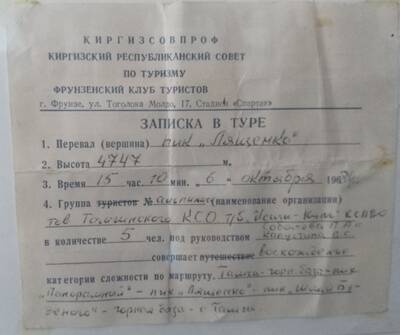 КИРГИЗСОВПРОФ
КИРГИЗСКИЙ РЕСПУБЛИКАНСКИЙ СОВЕТ
ПО ТУРИЗМУ
ФРУНЗЕНСКИЙ КЛУБ ТУРИСТОВ
г. Фрунзе, ул. Тоголока Молдо, 17. Стадион «Спартак»
ЗАПИСКА В ТУРЕ
1. Перевал (вершина) пик "Лященко"
2. Высота 4747 м.
3. Время 15 час. 10 мин. 6 - октября 198
4. Группа туристов № (наименование организации)
КСО т/б
в количестве 5 чел. под руководством
совершает путешествие восхождение
категории сложности по маршруту. горн. база - пик
- пик "Лященко" - пик
- горная база - с.